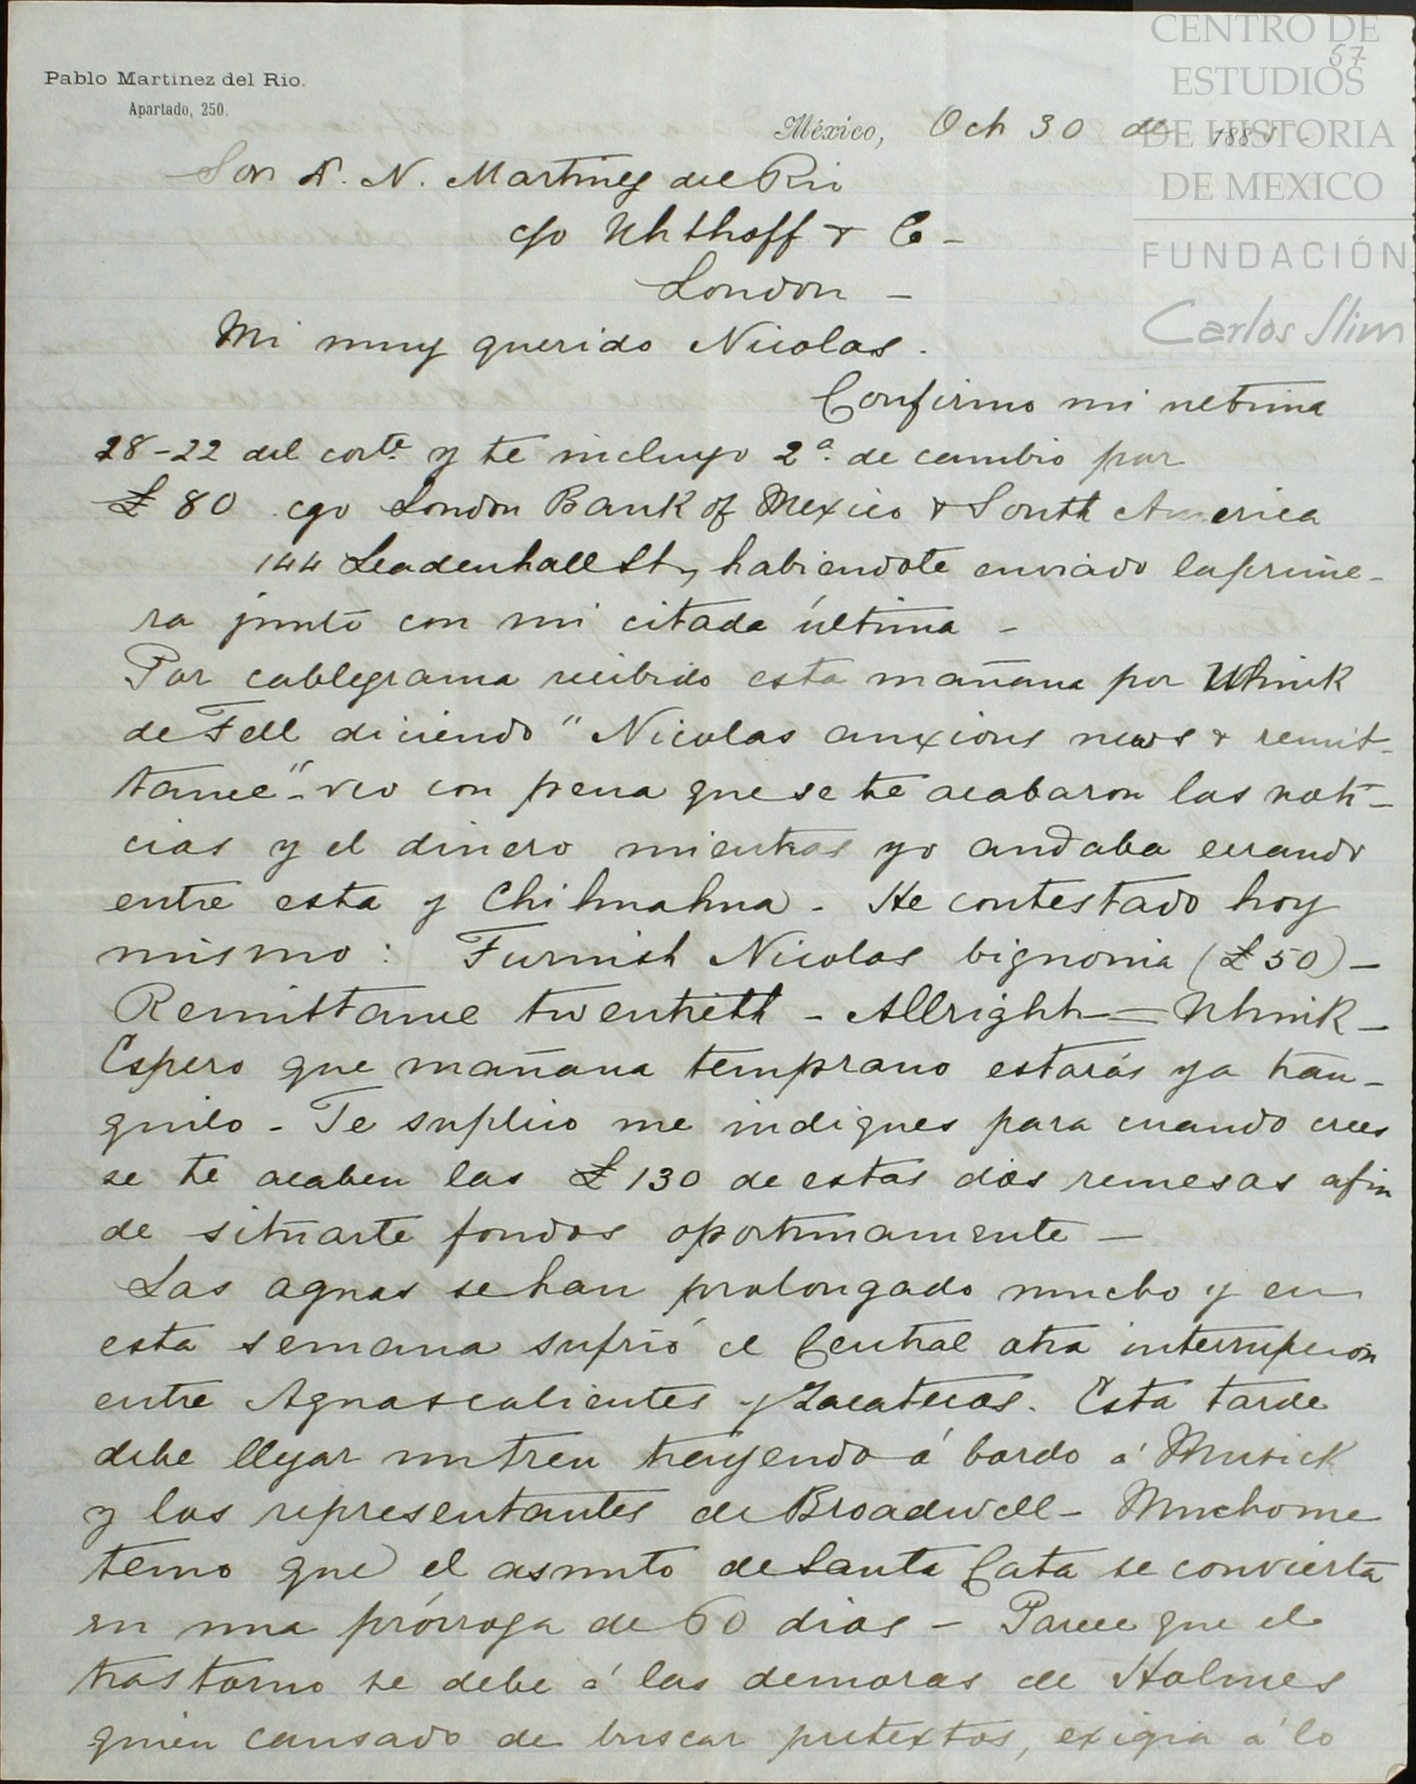 CENTRO DE
ESTUDIOS
DE HISTORIA
DE MEXICO
FUNDACIÓN
Carlos Slim
57
Pablo Martinez del Rio.
Apartado, 250.
México, Oct 30 de 188
Sor D. N. Martinez del Rio
c/o Uhthoff & Co -
London -
Mi muy querido Nicolas.
Confirmo mi ultima
28-22 del corte. y te incluyo 2a. de cambio por
£ 80 cgo London Bank of Mexico & South America
144 Leadenhall St, habiendote enviado la prime-
ra junto con mi citada última -
Por cablegrama recibido esta mañana por Uhink
de Fell diciendo "Nicolas anxious news & remit-
tance" - veo con pena que se te acabaron las noti-
cias y el dinero mientras yo andaba errando
entre esta y Chihuahua - He contestado hoy
mismo: Furnish Nicolas bignonia (£50) -
Remittance twentieth - Allright = Uhink -
Espero que mañana temprano estarás ya tran-
quilo - Te suplico me indiques para cuando crees
se te acaben las £130 de estas dos remesas afin
de situarte fondos oportunamente -
Las aguas se han prolongado mucho y en
esta semana sufrió el Central otra interrupcion
entre Aguascalientes y Zacatecas. Esta tarde
debe llegar un tren trayendo á bordo á Musick
y los representantes de Broadwell - Mucho me
temo que el asunto de Santa Cata se convierta
en una prórroga de 60 dias - Parece que el
trastorno se debe á las demoras de Holmes
quien cansado de buscar pretextos, exigia á lo